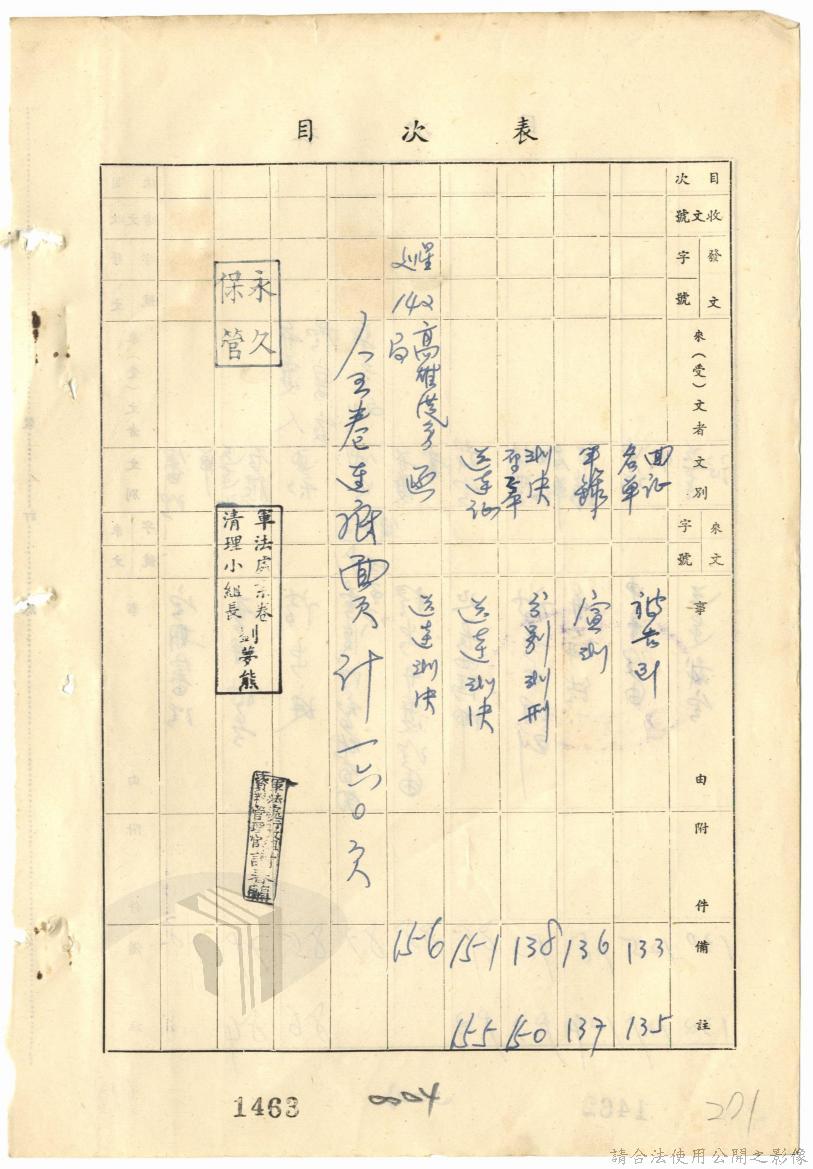 目次表
目次
收文號
發文
字號
來(受)文者
文別
來文
字號
事由
附件
備註
回証
名單
被告
133
135
筆錄
宣判
136
137
判決
分別判刑
138
150
送達証
送達判決
151
155
142
高雄港務局
函
送達判決
156
全卷連底面頁計一六0頁
永久
保管
軍法處案卷
清理小組長
劉夢熊
1463
004
201
請合法使用公開之影像